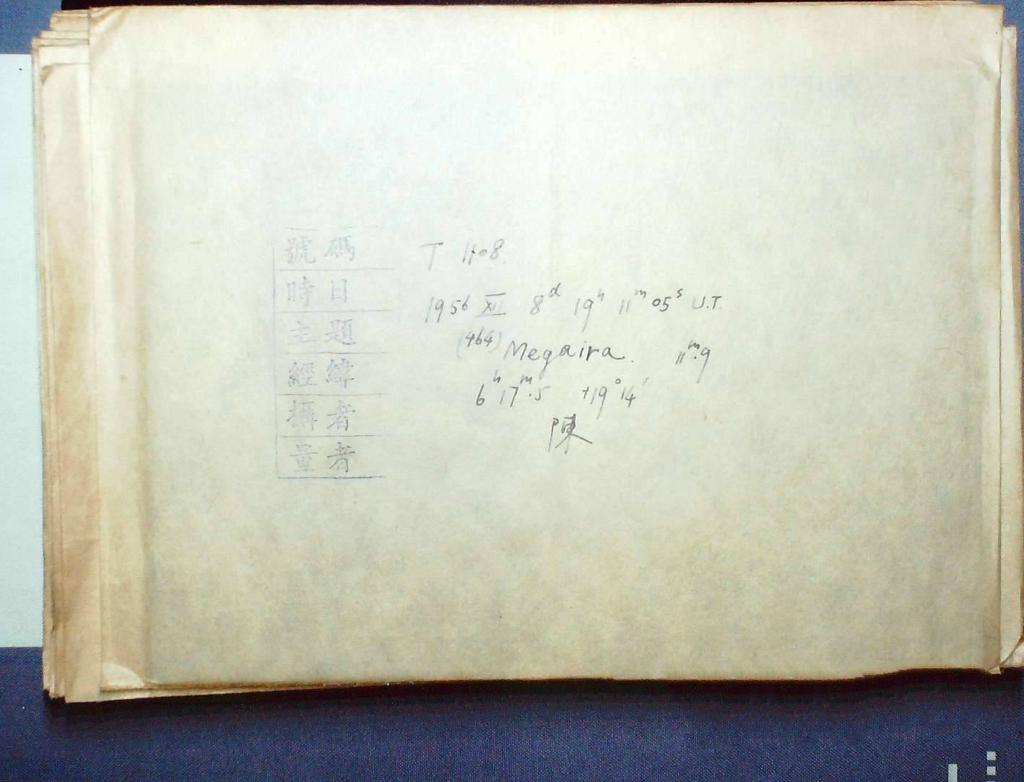 號碼 T 1408
時日 1956 XII 8ᵈ 19ʰ 11ᵐ 05ˢ U.T.
主題 (464) Megaira. 11ᵐ.9
經緯 6ʰ 17ᵐ.5 +19° 14′
攝者 陳
量者